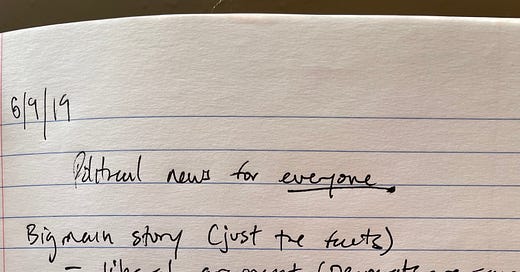 6/9/19
Political news for everyone.
Big main story (just the facts)
- liberal argument